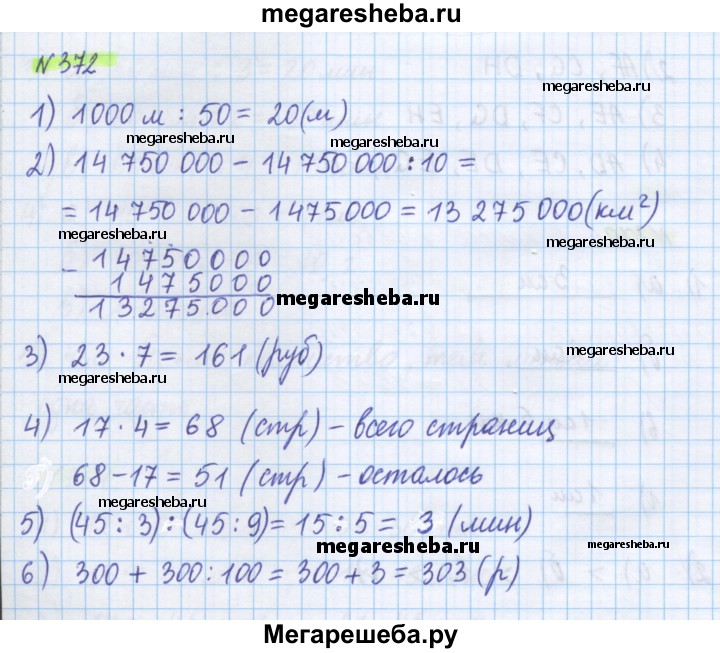 megaresheba.ru
N 372
1) 1000 м : 50 = 20(м)
megaresheba.ru
megaresheba.ru
2) 14 750 000 - 14 750 000 : 10 =
= 14 750 000 - 1475000 = 13 275 000 (км²)
megaresheba.ru
megaresheba.ru
- 14750000
1475000
13275000
megaresheba.ru
3) 23 · 7 = 161 (руб)
megaresheba.ru
megaresheba.ru
4) 17 · 4 = 68 (стр) - всего страниц
68 - 17 = 51 (стр) - осталось
megaresheba.ru
5) (45 : 3) : (45 : 9) = 15 : 5 = 3 (мин)
megaresheba.ru
megaresheba.ru
6) 300 + 300 : 100 = 300 + 3 = 303 (р)
Мегарешеба.ру